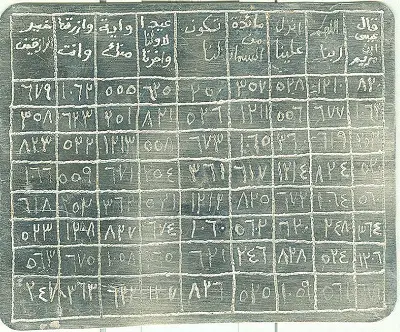 قال عيسى ابن مريم اللهم ربنا انزل علينا مائدة من السماء تكون لنا عيدا لاولنا واخرنا واية منك وارزقنا وانت خير الرازقين
١٢١٠ ٥٢٨ ٣٥٧ ٦٣٥ ٥٥٥ ١٠٦٢ ٦٧٩
٦٧٧ ٥٥٦ ١٢١١ ٥٢٦ ٨٢١ ٢٥١ ٦٢٣ ٣٥٨
١٠٦٥ ٦٧٣ ٥٥٨ ١٢١٣ ٥٢٢ ٨٢٣
٨٢٤ ١٢١٤ ٦١٧ ٣٦١ ٢٥٤ ٦٧١ ٥٥٩
٦٧٢ ٨٢٥ ١٢١٢ ٣٦٢ ٦١٨
٣٦٤ ٢٤٨ ٦٢٠ ٥٦٢ ١٠٦٠ ٦٧٤ ٨٢٧ ١٢٠٨ ٥٢٣
١٢٠٦ ٥٢٤ ٨٢٨ ٢٤٦ ٦٢١ ١٠٥٨ ٦٧٥ ٥٦٣
١٠٥٩ ٥٢٥ ٨٢٦ ١٢٠٧ ٦٢٢ ٣٦٣ ٢٤٧